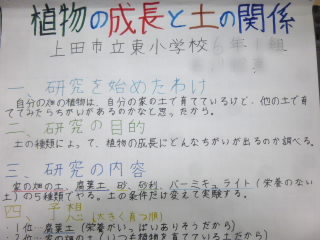 植物の成長と土の関係
上田市立東小学校
一、研究を始めたわけ
自分の畑の植物は、自分の家の土で育てているけど、他の土で育
ててみたらちがいがあるのかなと思ったから。
二、研究の目的
土の種類によって、植物の成長にどんなちがいが出るのか調べる。
三、研究の内容
家の畑の土、腐葉土、砂、砂利、バーミキュライト(栄養のない
土)の5種類でやる。土の条件だけ変えて実験する。
四、予想(大きく育つ順)
1位 腐葉土(栄養がいっぱいありそうだから)
2位 家の畑の土(いつも植物を育てている土だから)